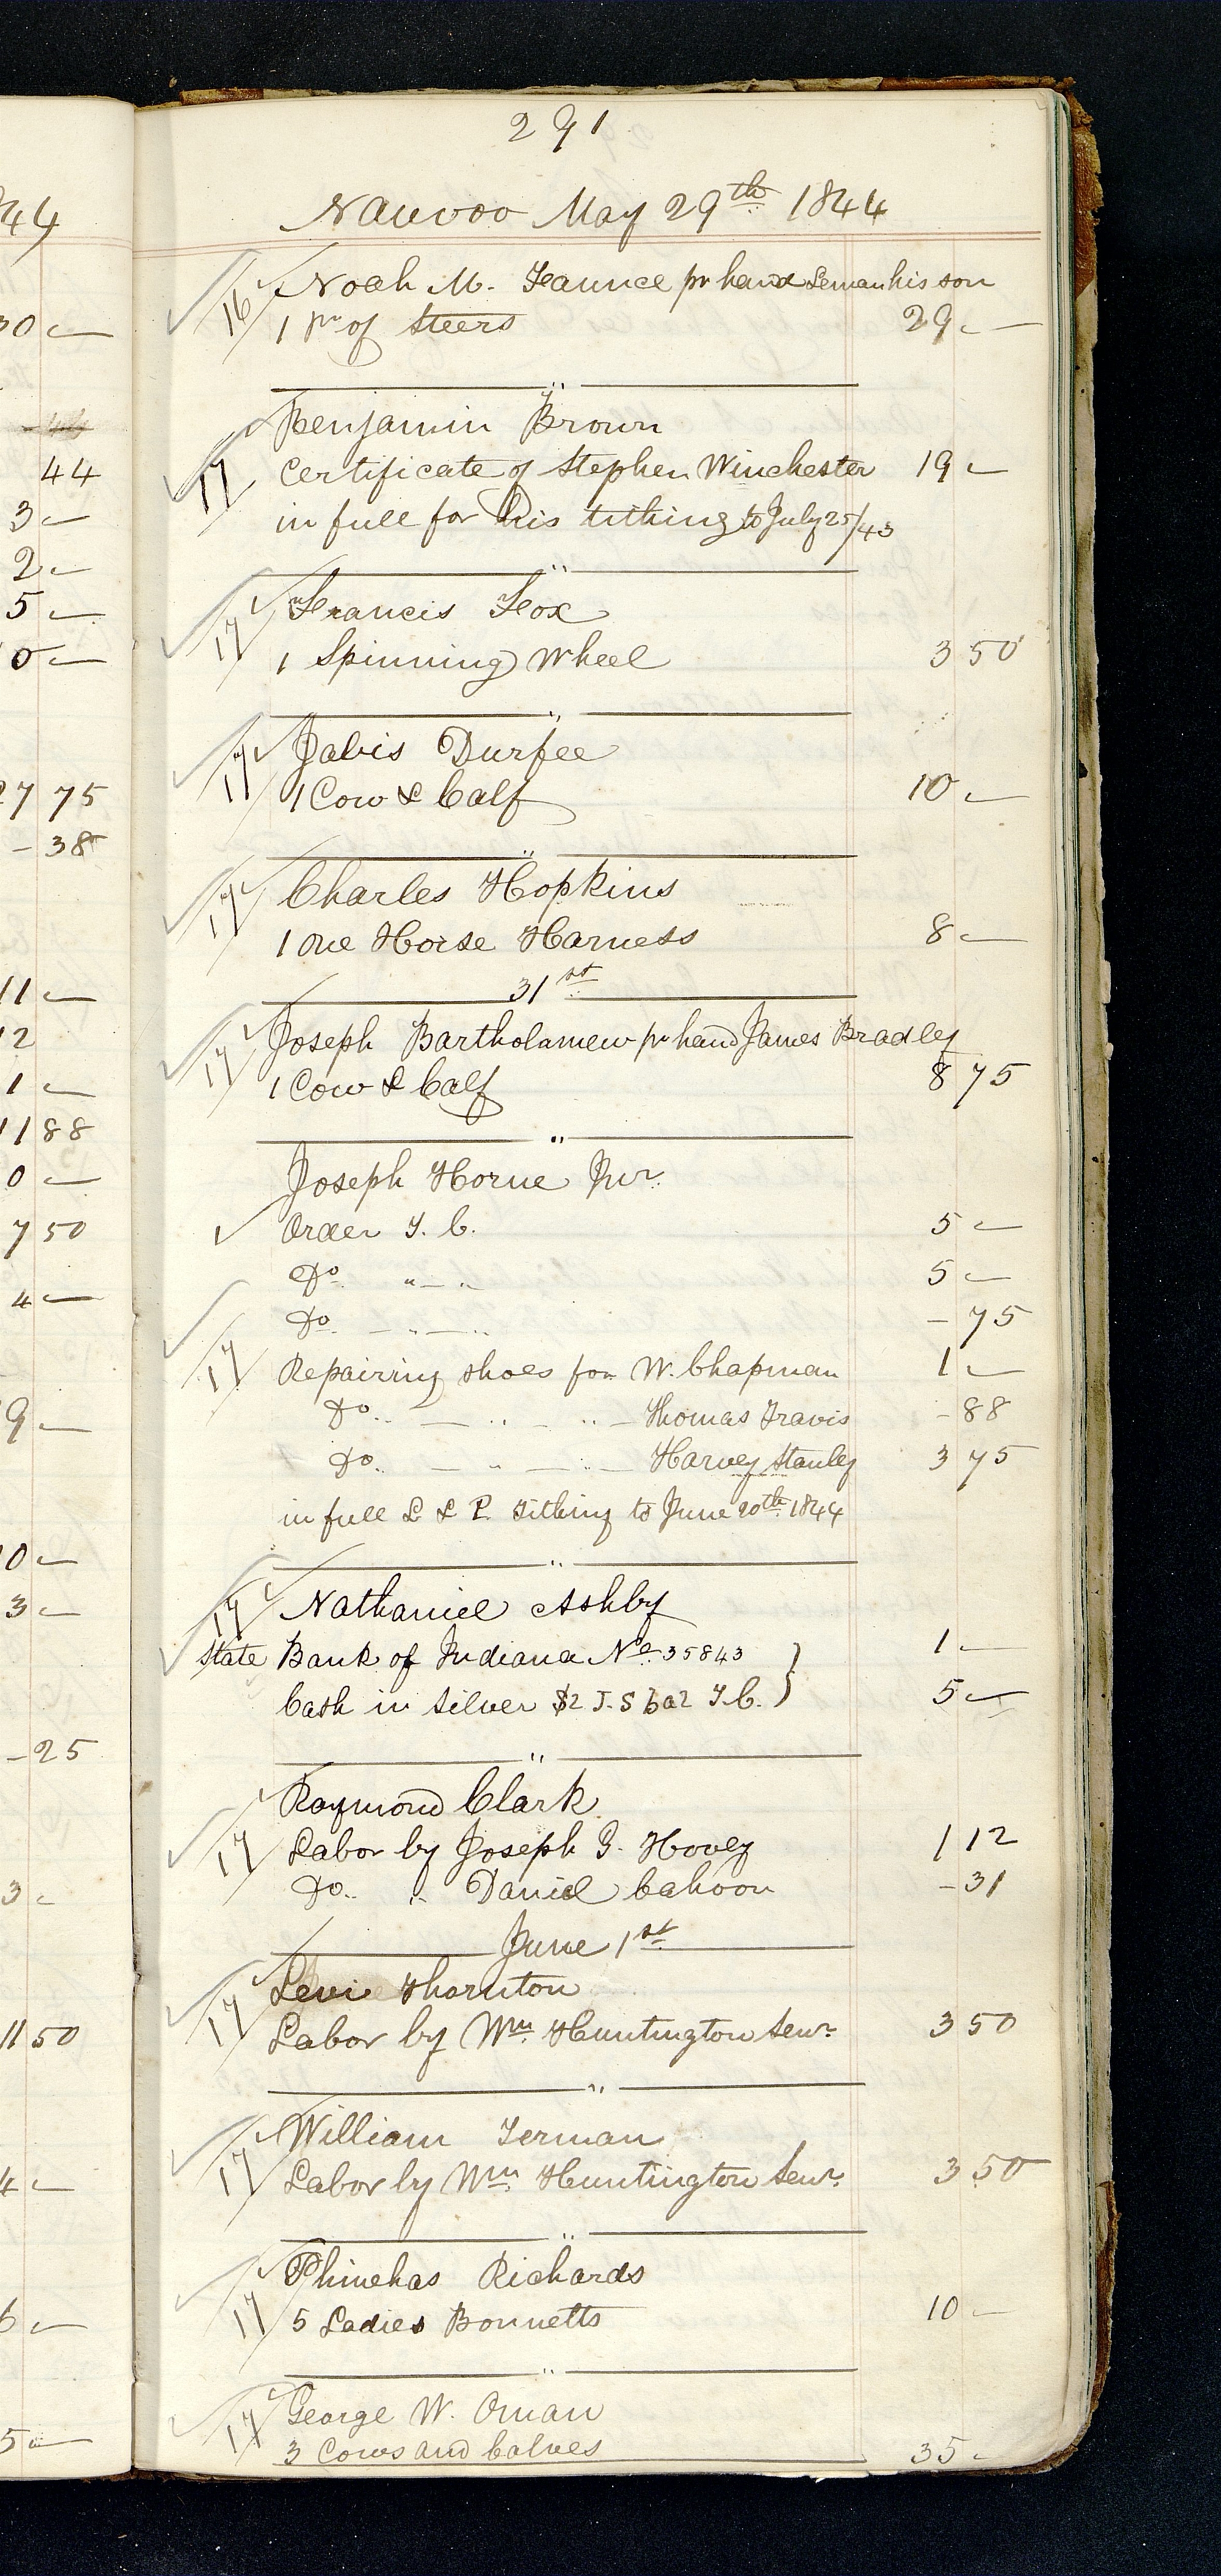 291
Nauvoo May 29th 1844
16 Noah M. pr hand his son
1 Pr of Steers 29 —
"
Benjamin Brown
17 Certificate of Stephen Winchester 19 —
in full for his tithing to July 25/43
"
Francis Fox
17 1 Spinning Wheel 3 50
"
17 Jabis Durfee
1 Cow & Calf 10 —
"
17 Charles Hopkins
1 one Horse Harness 8 —
31st
17 Joseph Bartholamew pr hand James Bradley
1 Cow & Calf 8 75
"
Joseph Horne Jur.
Order T. C. 5 —
Do. " — " 5 —
Do. — " — " - 75
17 Repairing shoes for W. Chapman 1 —
Do. — " — " — Thomas Travis - 88
Do. — " — " — Harvey Stanley 3 75
in full L & P. Tithing to June 20th 1844
"
17 Nathaniel Ashby
State Bank of Indiana No. 35843 } 1 —
Cash in Silver $2 J. S bal T. C. } 5 —
"
Raymond Clark
17 Labor by Joseph G. Hovey 1 12
Do. " Daniel Cahoon - 31
June 1st
17 Levi Thornton
Labor by Wm. Huntington Senr. 3 50
"
William
17 Labor by Wm. Huntington Senr. 3 50
"
Phinehas Richards
17 5 Ladies Bonnetts 10 —
"
17 George W. Oman
3 Cows and Calves 35 -
44
30 —
44
3 —
2 —
5 —
0 —
27 75
- 38
11 —
12
1 —
11 88
0 —
7 50
4 —
9 —
0 —
3 —
- 25
3 -
11 50
4 —
6 —
5 —